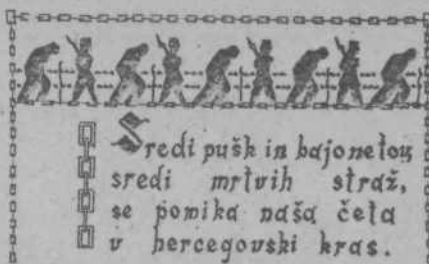 Sredi pušk in bajonetov
sredi mrtvih straž,
se pomika naša četa
v hercegovski kras.